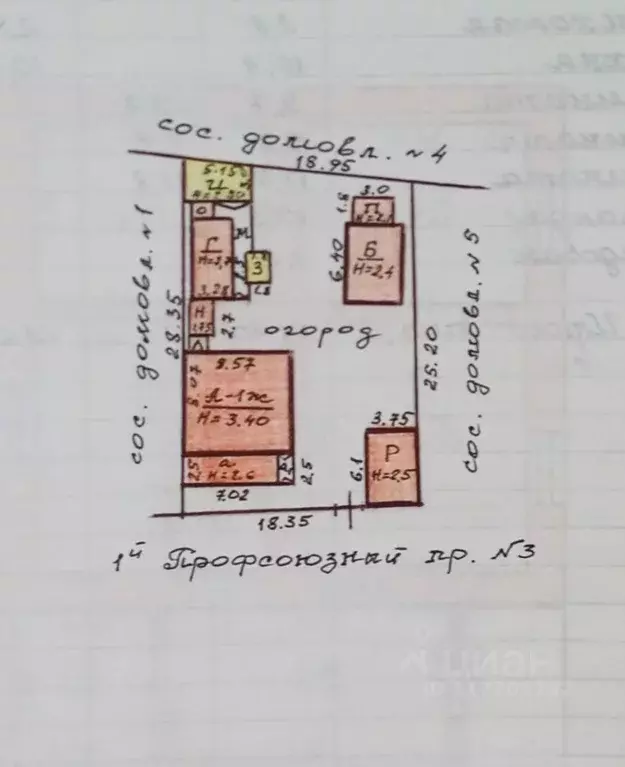 сос. домовл. №4
18.95
5.15
И
3.0
1.8
П
О
Г
Н=2,7
Б
Н=2,4
6.40
З
3.28
1.8
Н
1.75
2,7
огород
сос. домовл. №1
28.35
25.20
сос. домовл. №5
8.57
А-1ж
Н=3.40
3.75
Р
Н=2,5
6.1
2,5
а
Н=2.6
2,5
7.02
18.35
1й Профсоюзный пр. №3